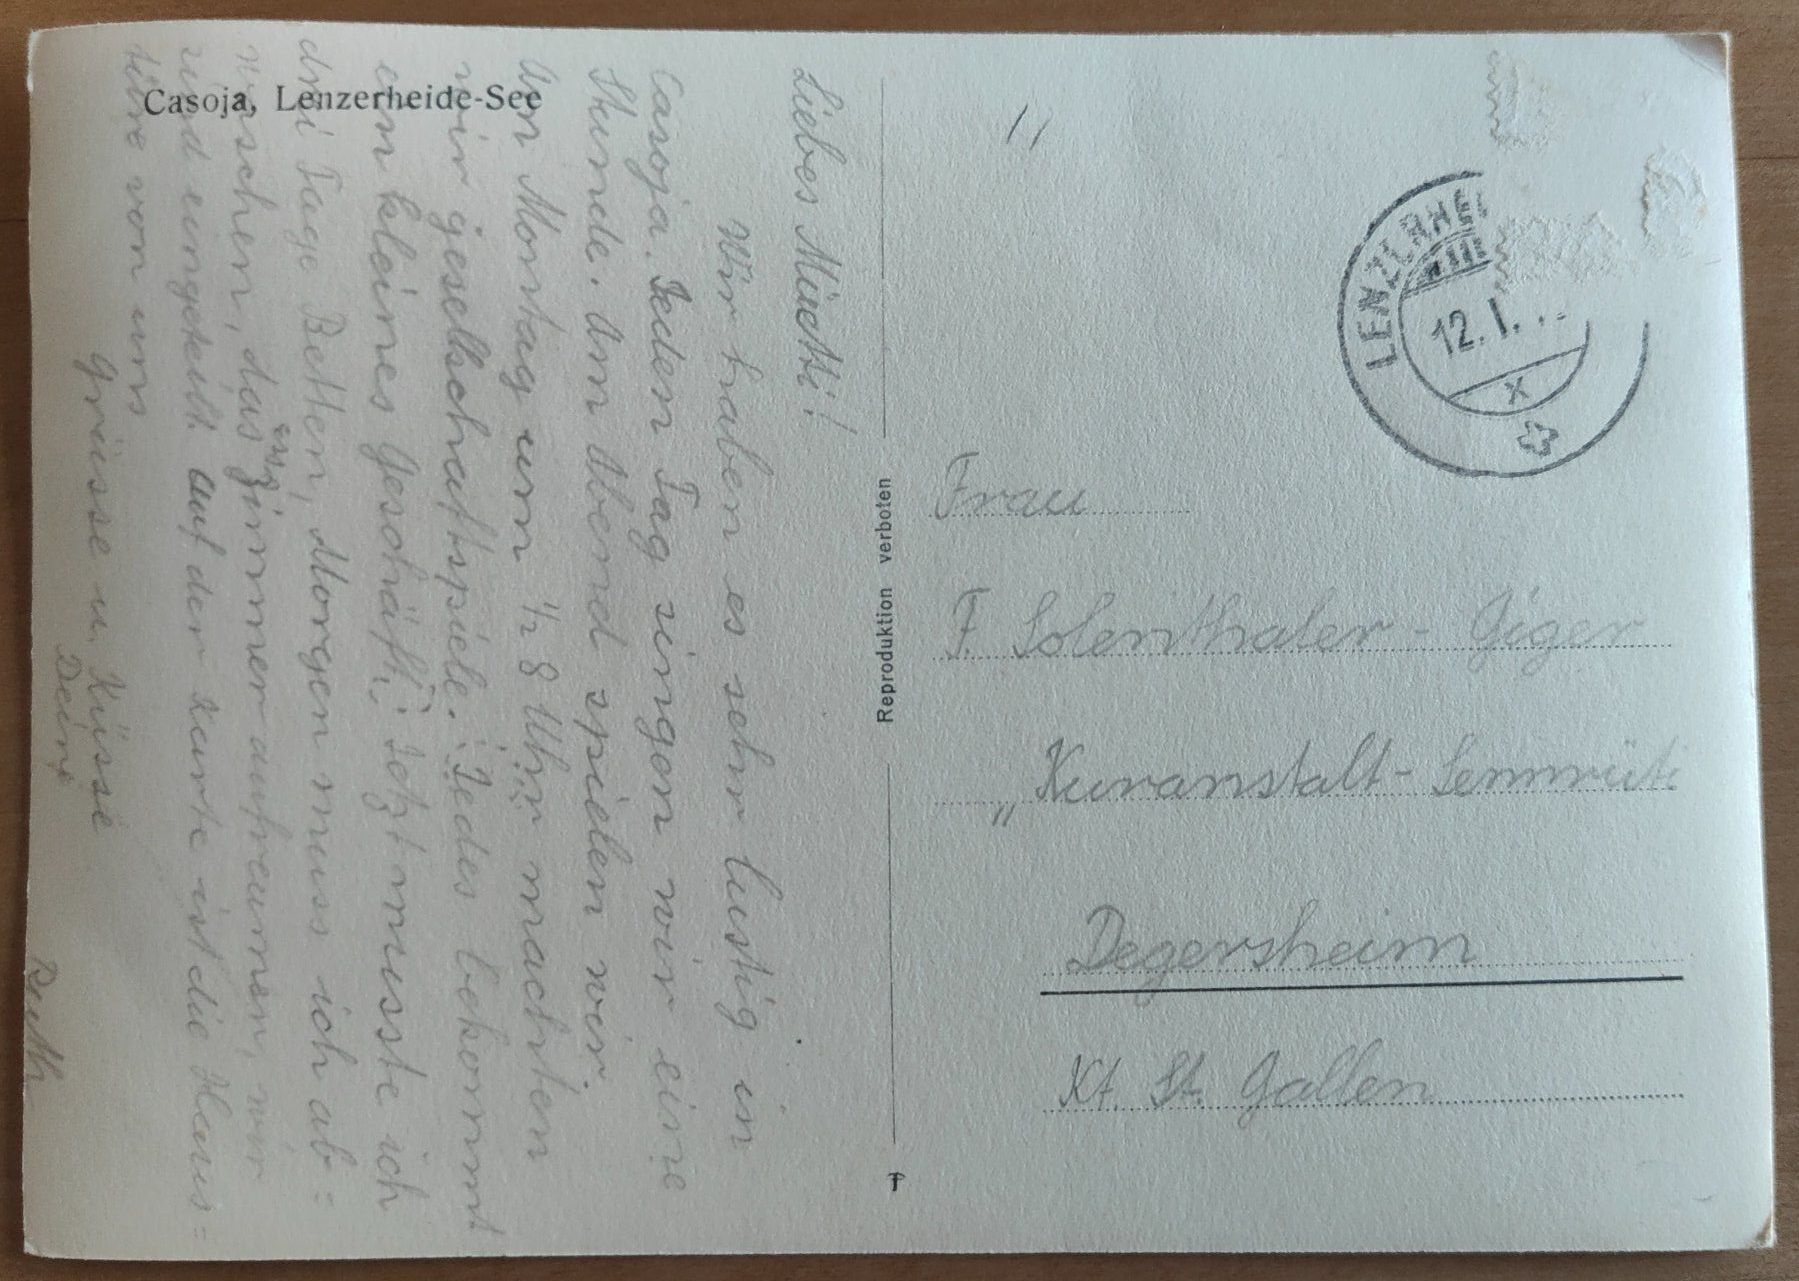 Casoja, Lenzerheide-See
Liebes Müetti!
Wir haben es sehr lustig in
Casoja. Jeden Tag singen wir eine
Stunde. Am Abend spielen wir.
Am Montag um 1/2 8 Uhr machten
wir gesellschaftspiele. Jedes bekommt
ein kleines Geschäft. Jetzt musste ich
drei Tage Betten, Morgen muss ich ab=
waschen, das Zimmer aufreumen, wir
sind eingeteilt auf der Karte ist die Haus=
von uns
Grüsse u. Küsse
Dein
Ruth
Reproduktion verboten
LENZERHEI
12. I.
X
Frau
F. Solenthaler - Giger
„Kuranstalt - Sennrüti
Degersheim
Kt. St. Gallen